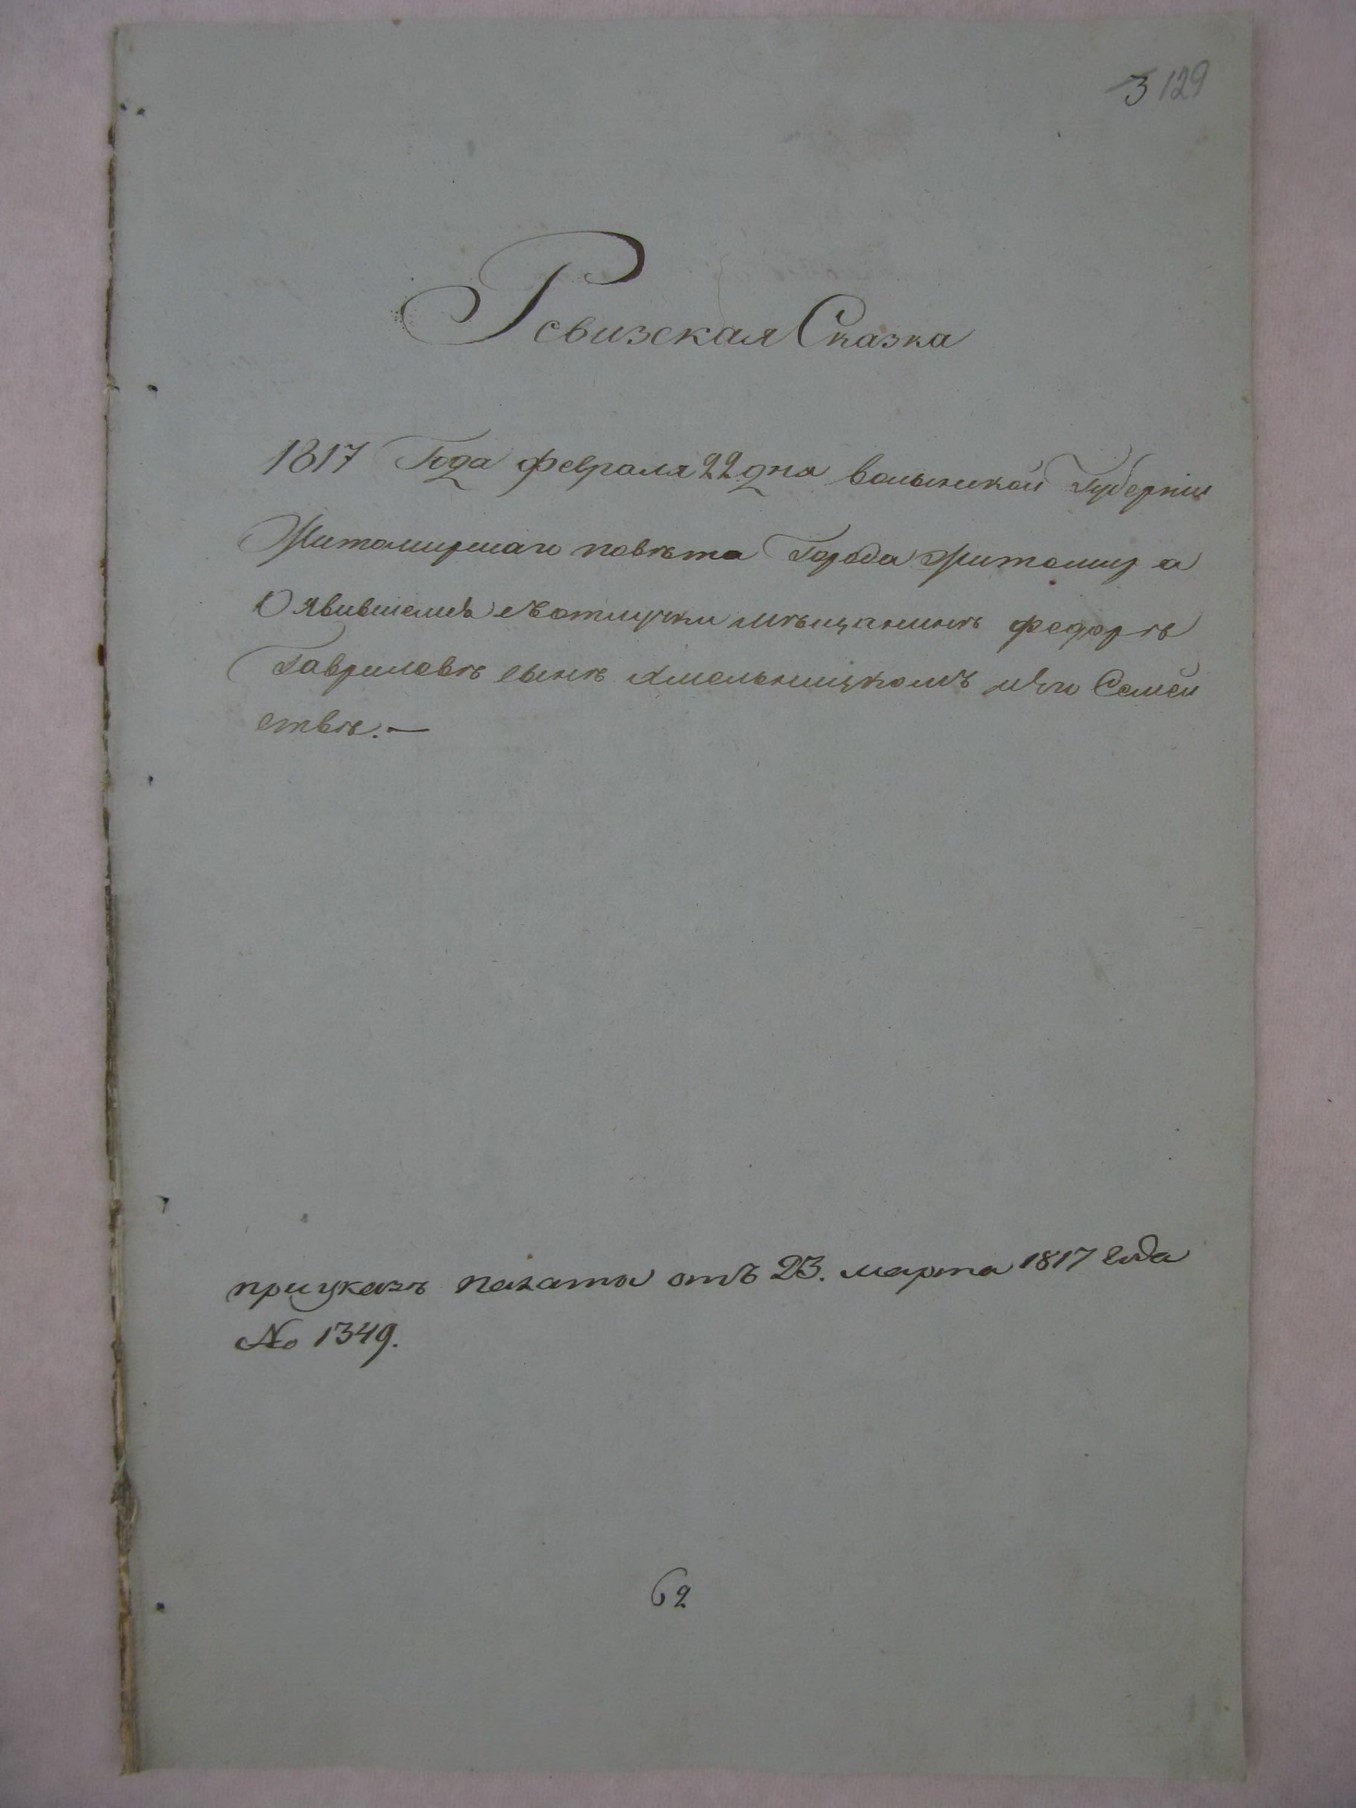 3 129
Ревизская Сказка
1817 Года февраля 22 дня волынской Губернии
Житомирскаго повѣта Города Житомира
О явившемся съ отлучки мѣщанинѣ федорѣ
Гавриловѣ сынѣ Хмельницкомъ и его Семей
ствѣ. —
при указѣ палаты отъ 23. марта 1817 года
No 1349.
62